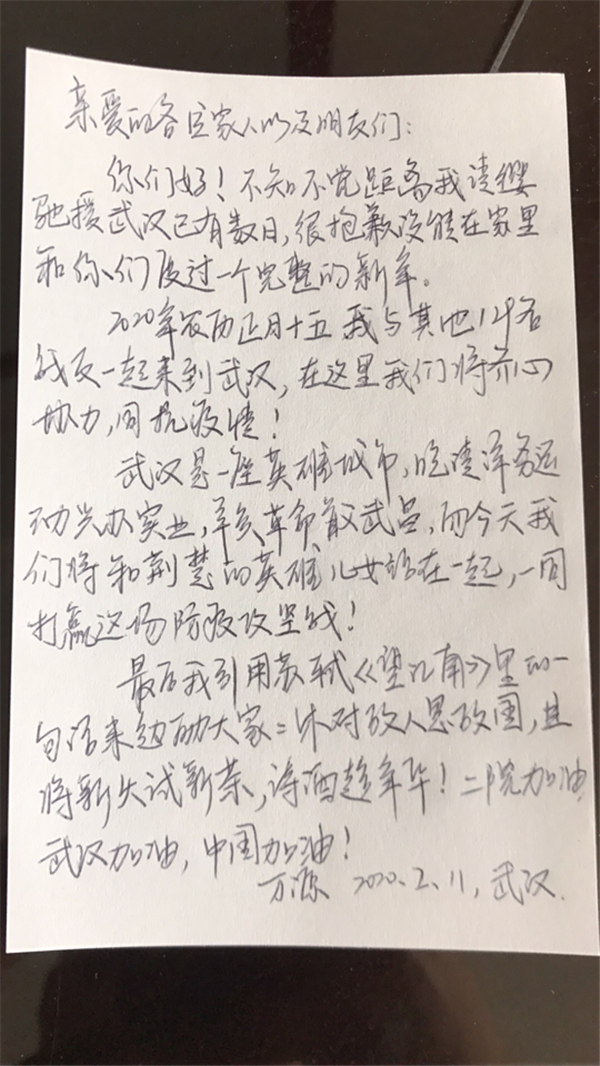 亲爱的各位家人以及朋友们：
你们好！不知不觉距离我请缨
驰援武汉已有数日，很抱歉没能在家里
和你们度过一个完整的新年。
2020年农历正月十五我与其他14名
战友一起来到武汉，在这里我们将齐心
协力，同抗疫情！
武汉是一座英雄城市，晚清洋务运
动兴办实业，辛亥革命首义武昌，而今天我
们将和荆楚的英雄儿女站在一起，一同
打赢这场防疫攻坚战！
最后我引用苏轼《望江南》里的一
句话来勉励大家：休对故人思故国，且
将新火试新茶，诗酒趁年华！二院加油，
武汉加油，中国加油！
万源 2020.2.11，武汉.